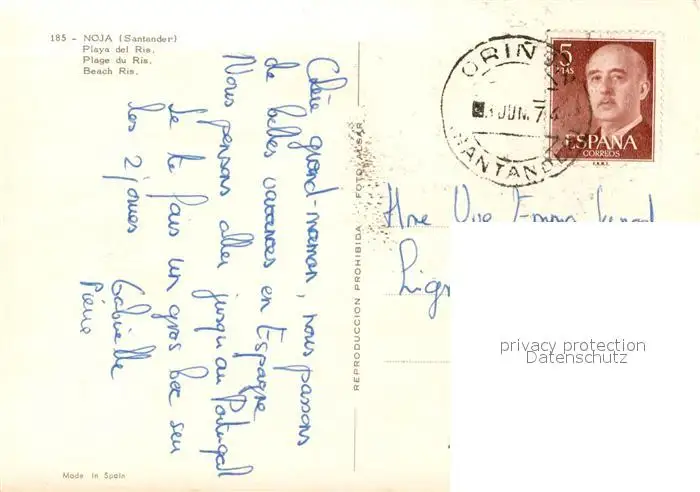 185 - NOJA (Santander)
Playa del Ris.
Plage du Ris.
Beach Ris.
Chère grand-maman, nous passons
de belles vacances en Espagne
Nous pensons aller jusqu'au Portugal
Je te fais un gros bec sur
les 2 joues
Gabrielle
Pierre
REPRODUCCION PROHIBIDA - FOTO ALSAR
5
PTAS
ESPAÑA
CORREOS
F.N.M.T.
JUN. 7
SANTANDER
Vve Emma
privacy protection
Datenschutz
Made in Spain